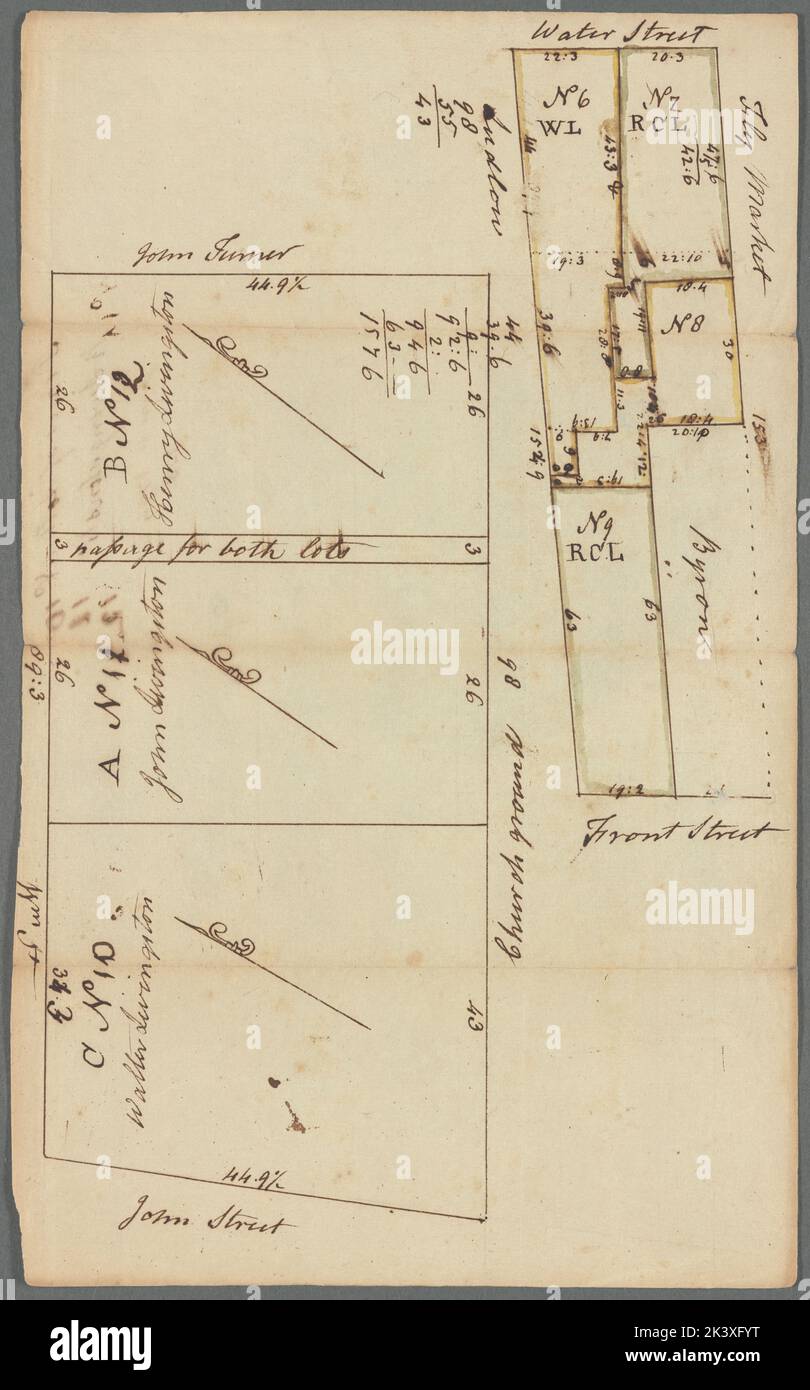 Water Street
22:3
20.3
N 6
WL
N 7
RCL
Fly Market
47:6
5
42:6
44
43:3
Ludlow
98
55
43
19:3
22:10
18.4
N 8
30
39:6
11.3
18:4
20:10
13:9
7:9
15:9
19:3
N 9
RCL
Byron
63
63
19:2
Front Street
John Turner
44.9½
44
39.6
9:
92:6
2:
946
63
1546
26
26
B N 12
Henry Livingston
3
passage for both lots
3
26
26
A N 11
John Livingston
89:3
98
Church ground
Wm St
C N 10
Walter Livingston
34.3
43
44.9½
John Street
a
alamy
alamy
Image ID: 2K3XFYT
www.alamy.com